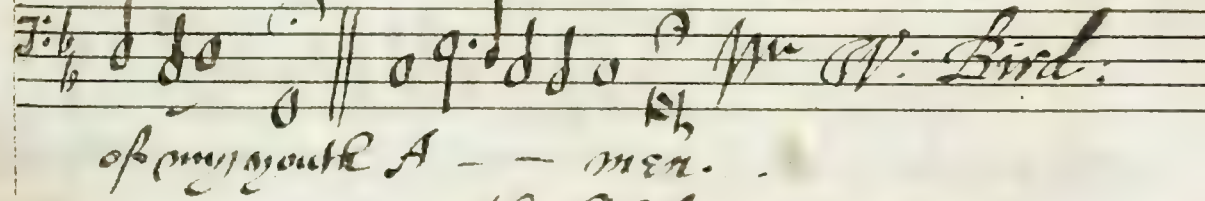 Mr W: Bird:
of my youth A - - men.